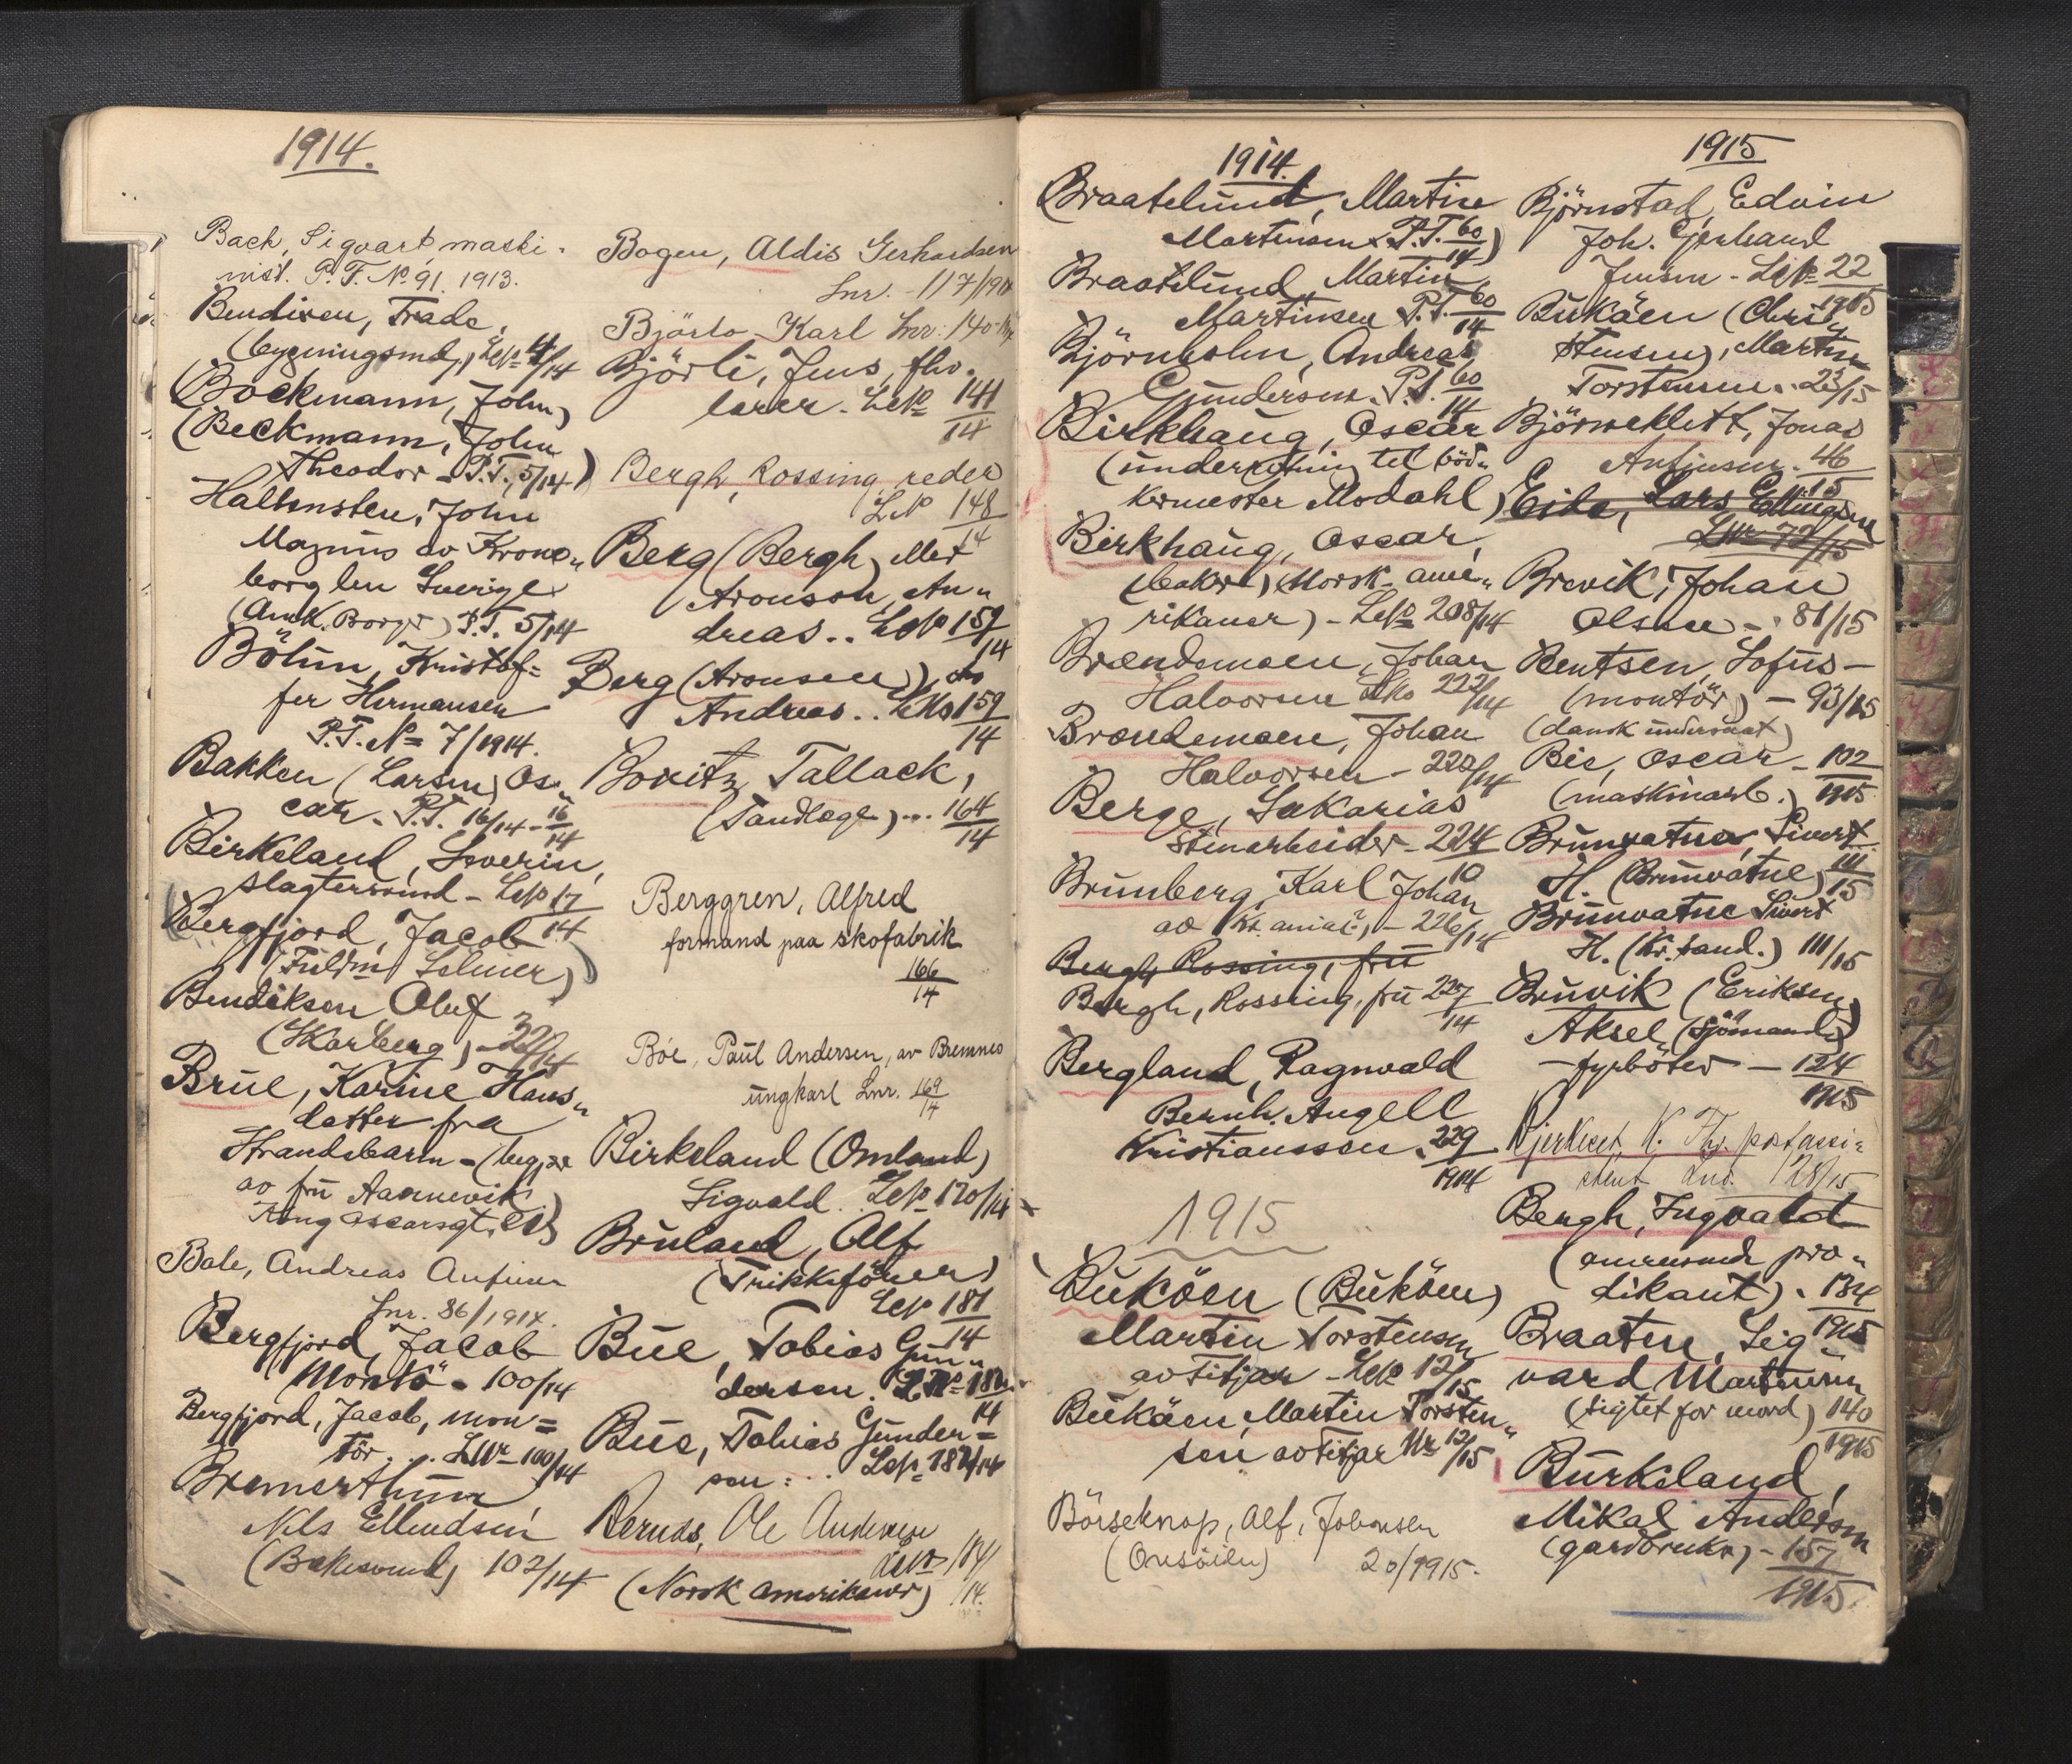 1914.
Bach, Sigvart maski-
nist. P.T. No 91. 1913.
Bendixen, Trade,
(bygningsmd,) 4/14
Bockmann, John,
(Beckmann, John
Theodor - P.T. 5/14)
Hallensten, John
Magnus av Krono-
borg len Sverige
(Amk. Borge) P.T. 5/14
Böhm, Kristof=
fer Hermansen
P.T. No 7/1914.
Bakken (Larsen) Os-
car. P.T. 16/14 - 16/14
Birkeland, Severin,
slagtersvend - 17/14
Bergfjord, Jacob
(Fuldm Selmer)
Bendiksen Oluf
(Skarberg) - 32/14
Brue, Karine Hans-
datter fra
Strandebarm -
av frü Aarnevik
Kong Oscarsgt.
Bale, Andreas Anfinn
Lnr. 86/1914.
Bergfjord, Jacob
Montö - 100/14
Bergfjord, Jacob, mon=
tör . . . LNr 100/14
Bremerthun
Nils Ellendsen
102/14
Bogen, Aldis Gerhardsen
Lnr. - 117/1914
Björlo - Karl Lnr: 140-14
Björli, Jens, fhv.
lærer. 141/14
Bergh, Rossing reder
148/14
Berg (Bergh) Met
Aronson, An-
dreas .. 159/14
Berg (Aronsen),
Andreas .. 159/14
Bonitz, Tallack,
(Tandlæge) ... 164/14
Berggren, Alfred
formand paa skofabrik
166/14
Böe, Paul Andersen, av Bremnes
ungkarl Lnr. 169/14
Birkeland (Omland)
Sigvald. 170/14
Bruland, Alf
(Trikkeförer)
181/14
Bue, Tobias Gun-
dersen. 182/14
Bue, Tobias Gunder=
sen: .. 182/14
Bernds, Ole Andersen
184/14.
(Norsk amerikaner)
1914.
Braatelund, Martin
Martinsen. P.T. 60/14)
Braatelund, Martin
Martinsen P.T. 60/14
Björnholm, Andreas
Gundersen. P.T. 60/14
Birkhaug, Oscar
(underretning til böd-
kermester Modahl)
Birkhaug, Oscar,
(baker) Norsk-ame-
rikaner) - 208/14
Brændemoen, Johan
Halvorsen 222/14
Brændemoen, Johan
Halvorsen - 222/14
Berge, Sakarias
stenarbeider - 224
Brunberg, Karl Johan
av Kr.ania:, - 226/14
Bergh, Rossing, frü
Bergh, Rossing, frü 227/14
Bergland, Ragnvald
Bernh. Angell
Kristianssen. 229/1914
1915
Buköen (Buköen)
Martin Torstensen
av Fitjar 12/15
Bukäen, Martin Torsten-
sen av Fitjar Nr 12/15
Börseknop, Alf, Johansen
20/1915.
1915
Björnstad, Edvin
Joh. Gerhard
Jensen - 22/1915
Bukäen (Chri
stensen), Martin
Torstensen. 23/15
Björneklett, Jonas
Anfinsen. 46/15
Eide, Lars Ellingsen
LNr 72/15
Brevik, Johan
Olsen - 81/15
Bentsen, Sofus -
(montör) - 93/15
(dansk undersaat)
Bie, Oscar - 102/1915
(maskinarb.)
Brunvatne, Sivert
H. (Brunvatne) 111/15
Brunvatne Sivert
H. (Kr.sand.) 111/15
Bruvik (Eriksen)
Aksel, (sjömand)
- fyrböter - 124/1915
Bjerkeset, K. Thr. postassi=
stent Lnr. 128/15
Bergh, Ingvald
(omreisende præ-
dikant). 134/1915
Braaten, Sig-
vard Martinsen
(sigtet for mord) 140/1915
Burkeland,
Mikal Andersen
(gardbruker) - 157/1915.